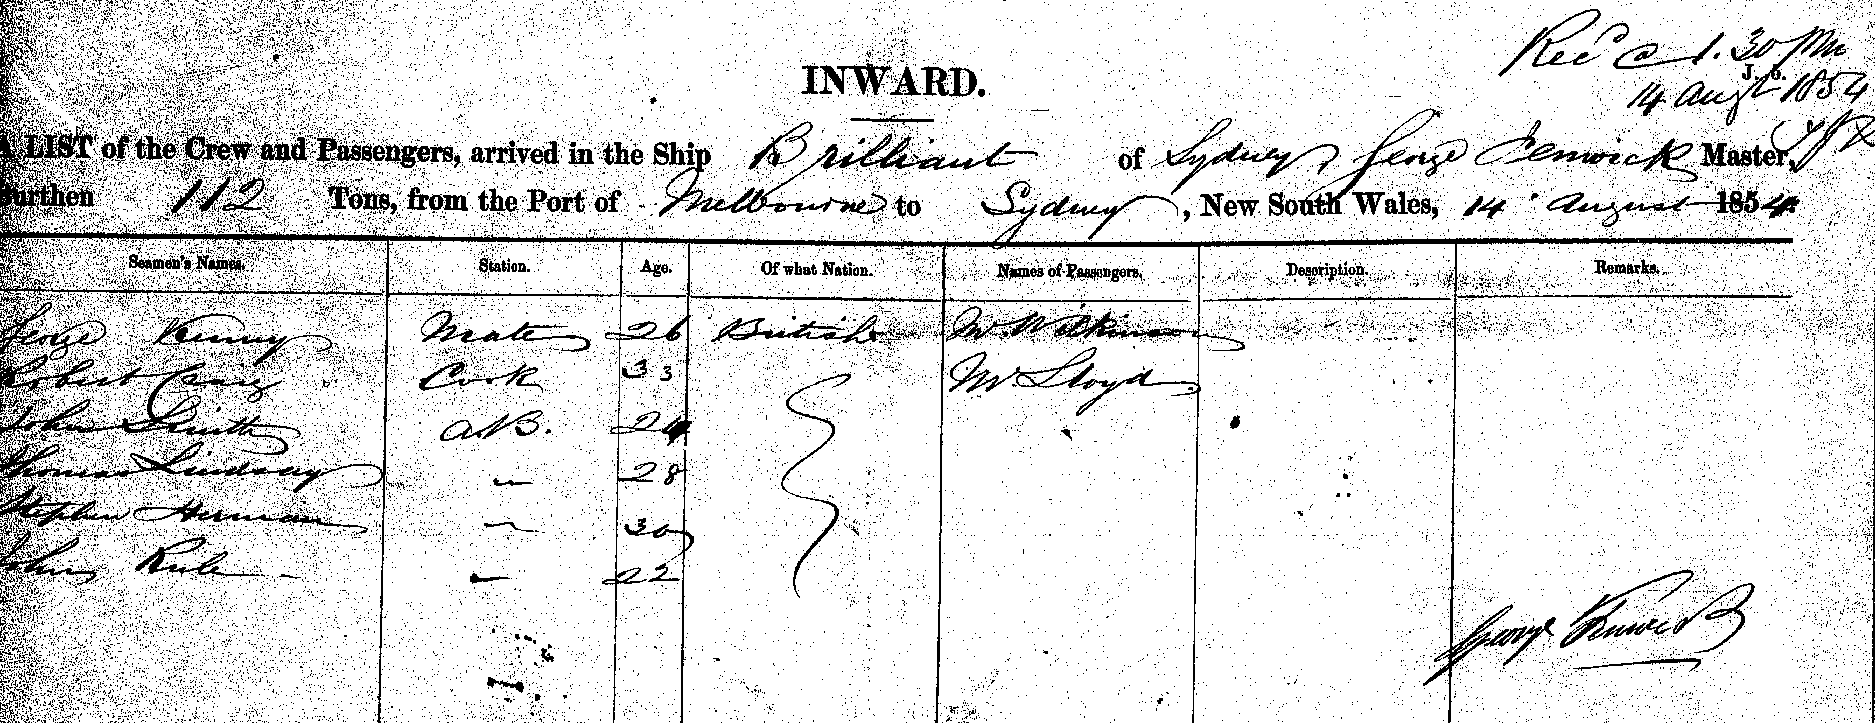 Recd @ 1.30 PM
J. S.
14 Augt 1854
INWARD.
A LIST of the Crew and Passengers, arrived in the Ship Brilliant of Sydney, George Fenwick Master,
Burthen 112 Tons, from the Port of Melbourne to Sydney, New South Wales, 14 August 1854.
Seamen's Names. Station. Age. Of what Nation. Names of Passengers. Description. Remarks.
George Kenny Mate 26 British Mr Wilkinson
Robert Craig Cook 33 Mr Lloyd
John Smith AB. 24
Thomas Lindsay 〃 28
Stephen Herman 〃 30
John Rule 〃 22
George Fenwick